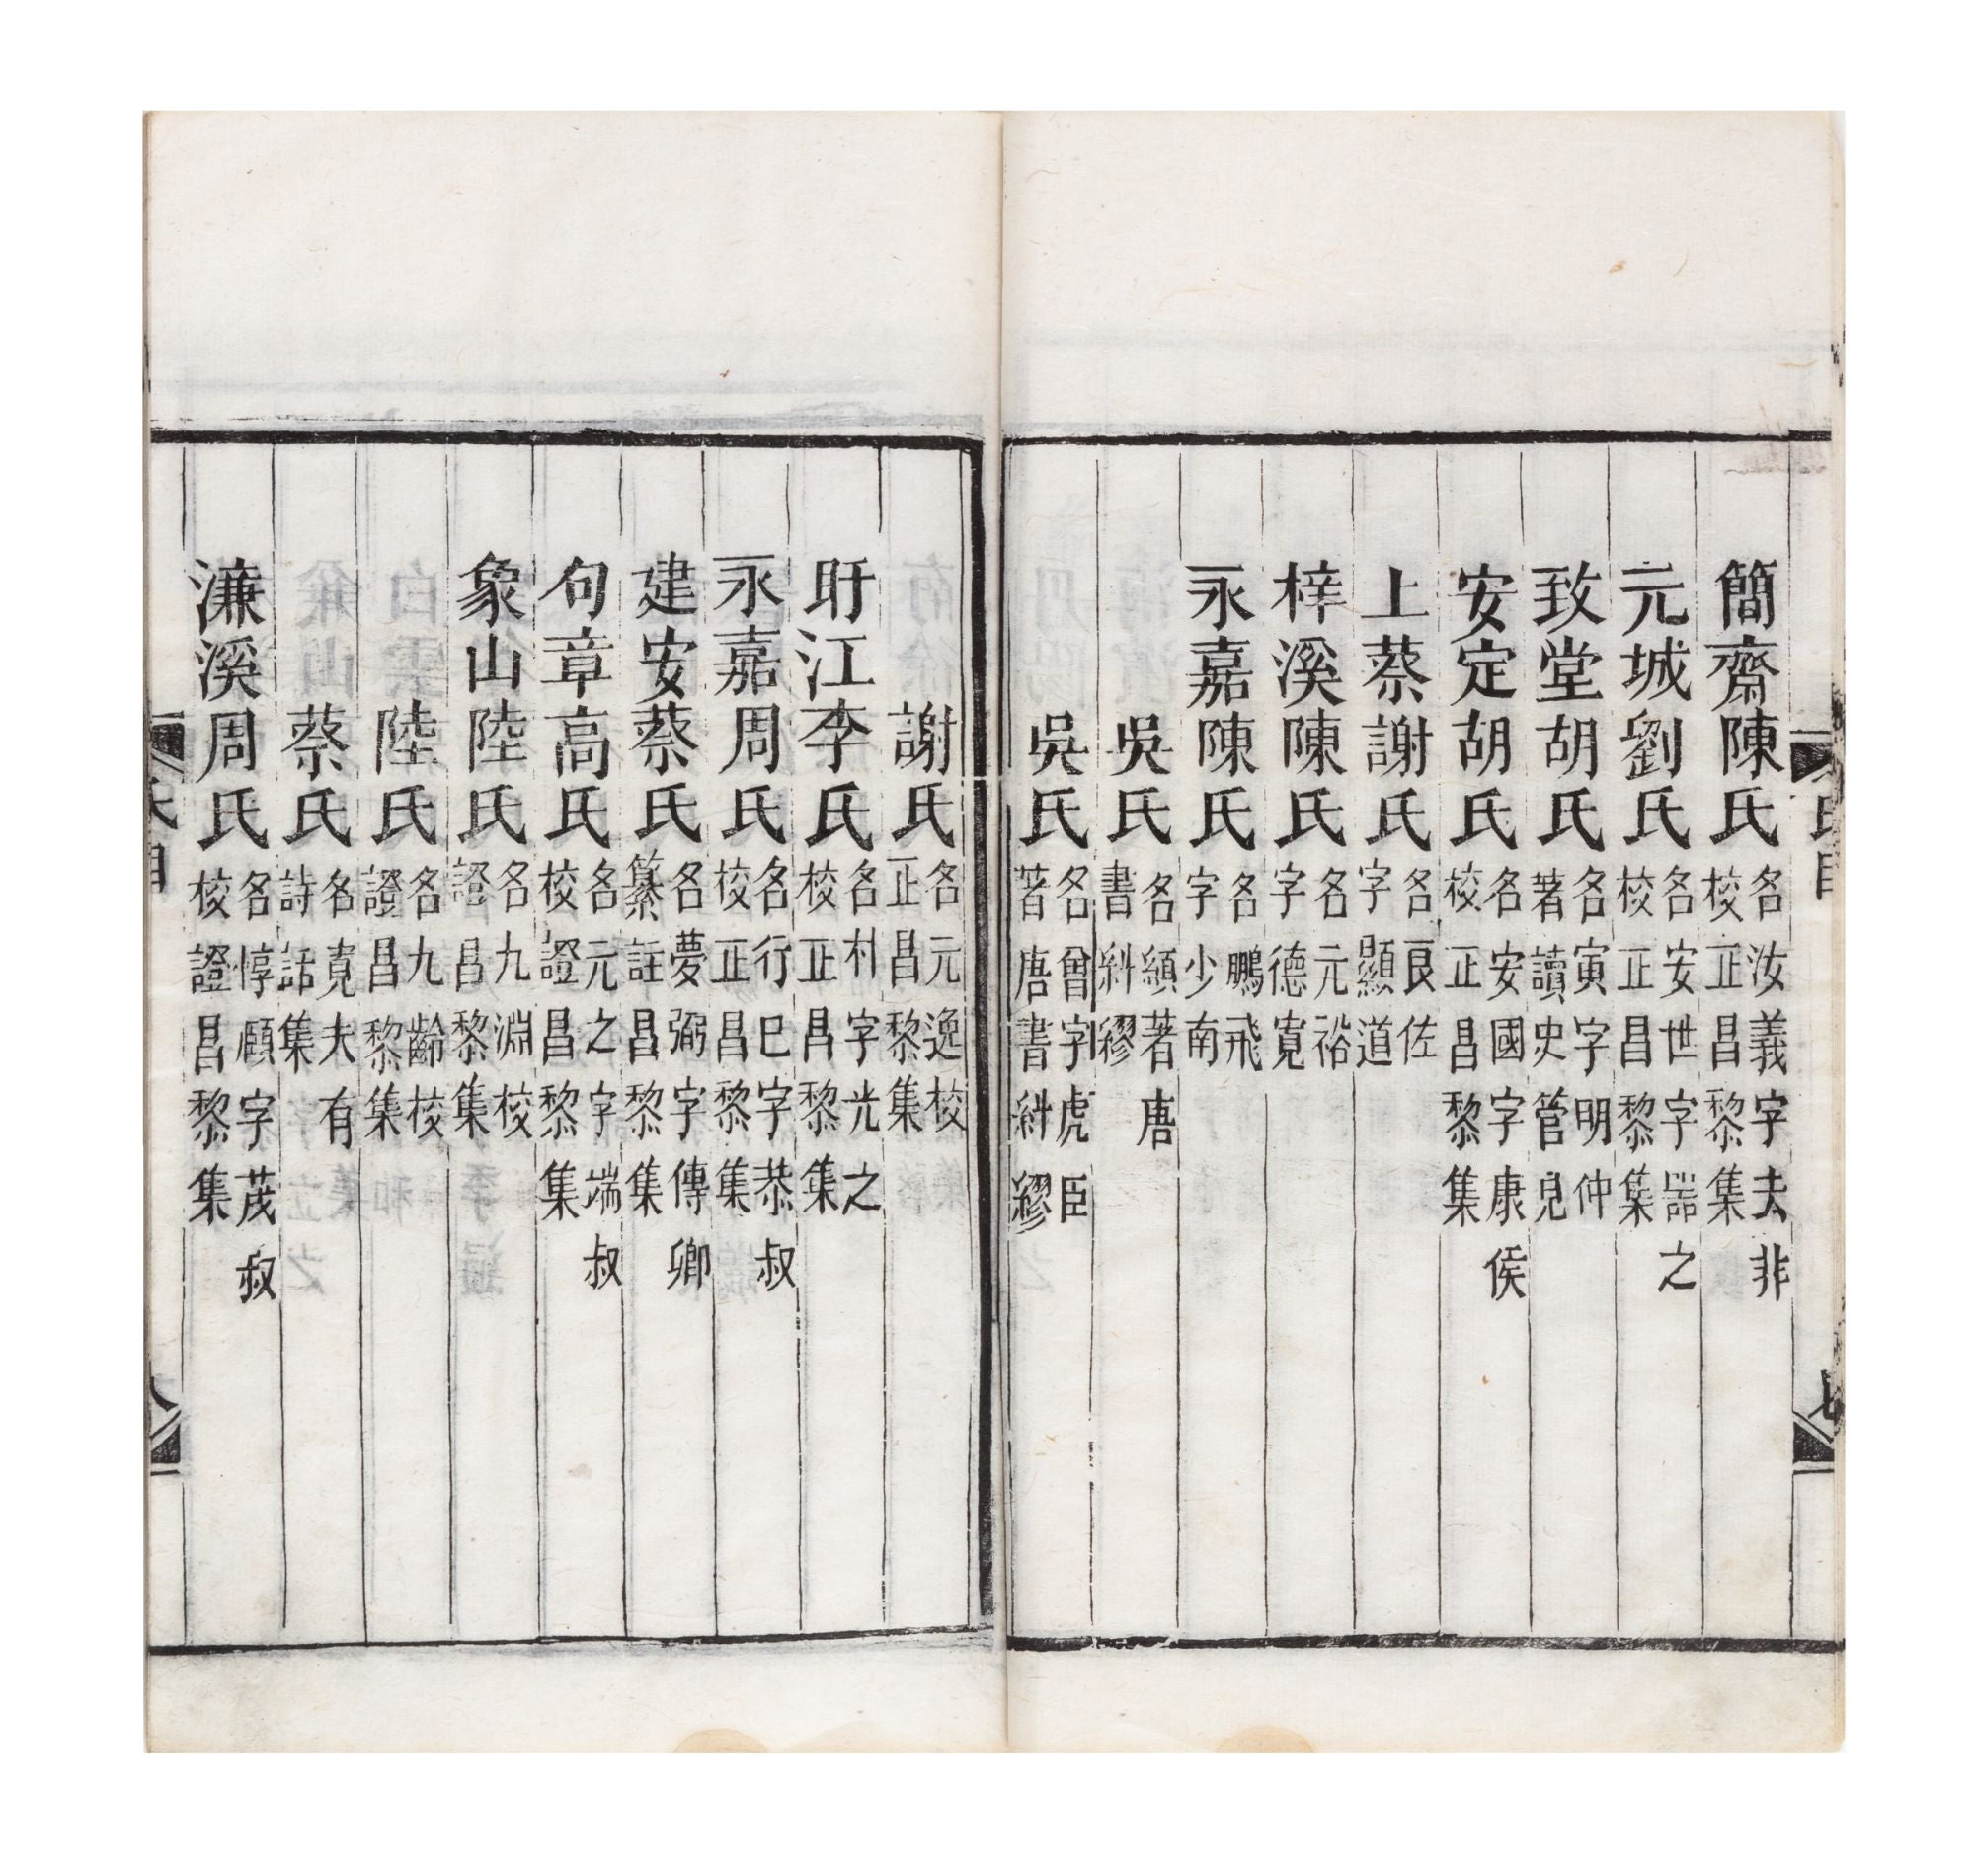 簡齋陳氏名汝義字去非校正昌黎集
元城劉氏名安世字噐之校正昌黎集
致堂胡氏名寅字明仲著讀史管見
安定胡氏名安國字康侯校正昌黎集
上蔡謝氏名良佐字顯道
梓溪陳氏名元裕字德寬
永嘉陳氏名鵬飛字少南
吳氏名縝著唐書糾繆
吳氏名曾字虎臣著唐書糾繆
謝氏名元逸校正昌黎集
盱江李氏名朴字光之校正昌黎集
永嘉周氏名行巳字恭叔校正昌黎集
建安蔡氏名夢弼字傳卿纂註昌黎集
句章高氏名元之字端叔校證昌黎集
象山陸氏名九淵校證昌黎集
陸氏名九齡校證昌黎集
蔡氏名寬夫有詩話集
濂溪周氏名惇頤字茂叔校證昌黎集